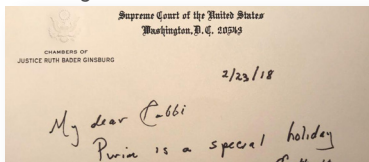 Supreme Court of the United States
Washington, D. C. 20543
CHAMBERS OF
JUSTICE RUTH BADER GINSBURG
2/23/18
My dear Rabbi
Purim is a special holiday